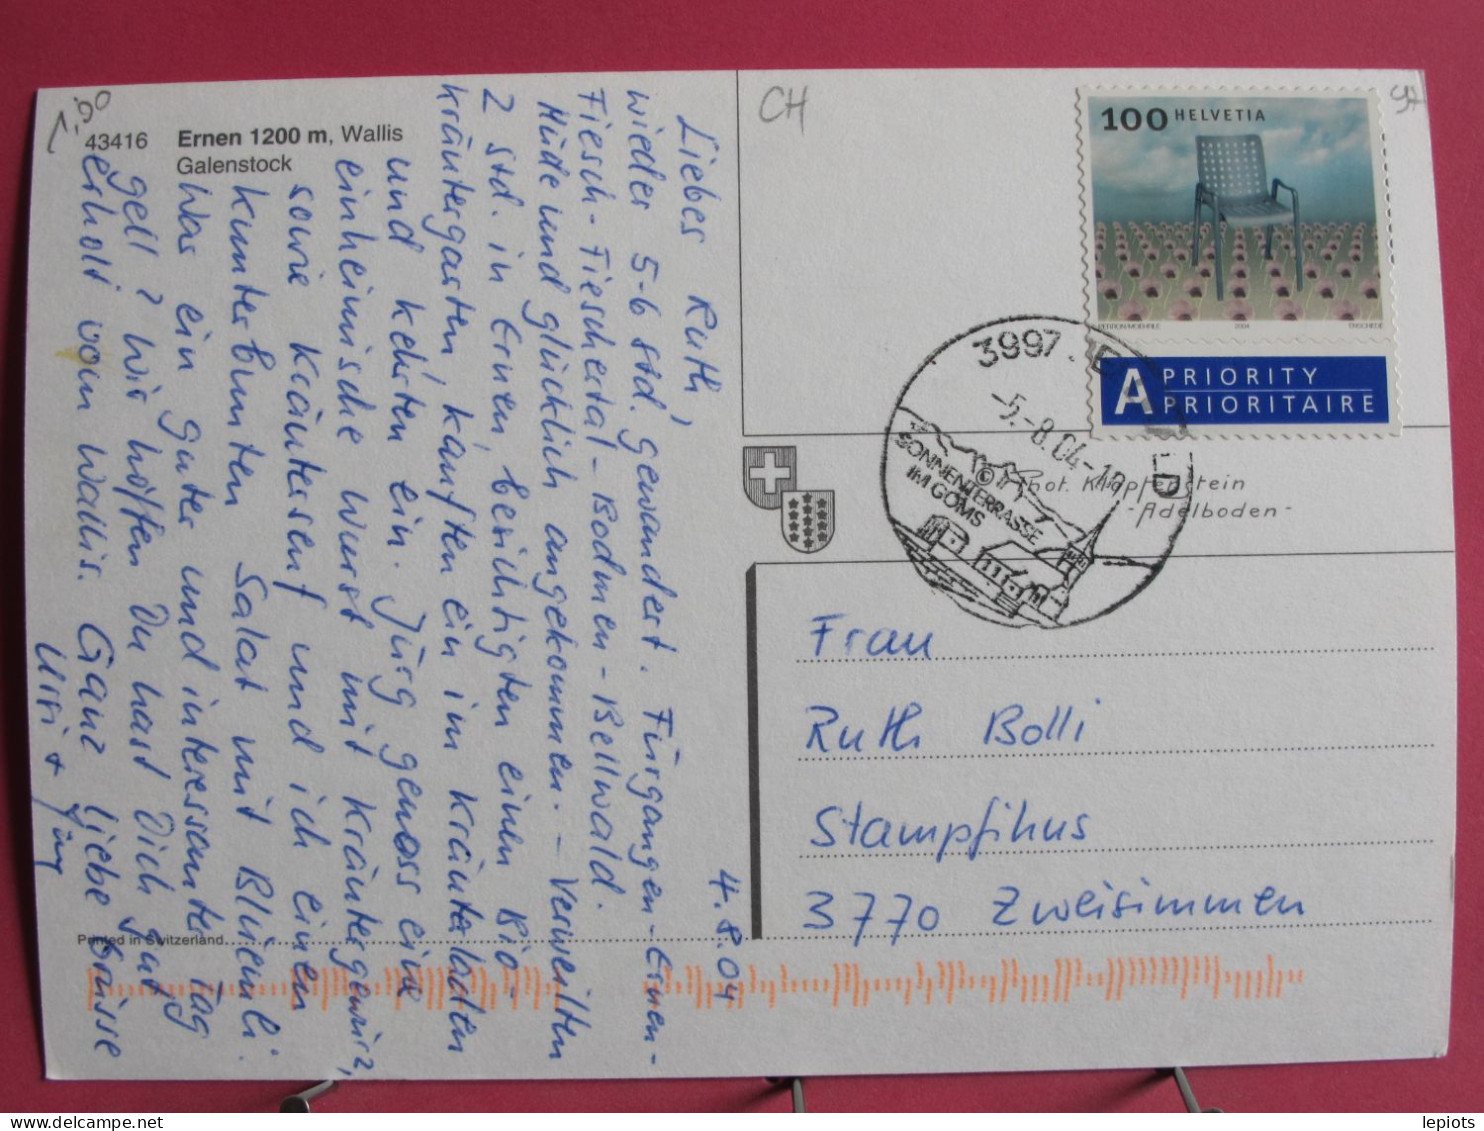 1,90
43416 Ernen 1200 m, Wallis
Galenstock
4.8.04
Liebes Ruth,
wieder 5-6 std. gewandert. Fürgangen-Ernen-
Fiesch-Fieschertal-Bodmen-Bellwald.
Müde und glücklich angekommen. - Verweilten
2 std. in Ernen, besichtigten einen Bio-
kräutergarten, kauften ein im Kräuterladen
und kehrten ein. Jürg genoss eine
einheimische Wurst mit Kräutergewürz,
sowie Kräutersenf und ich einen
kunterbunten Salat mit Blüemli.
Was ein guter und interessanter Tag
gell? Wir hoffen Du hast Dich gut
erholt vom Wallis. Ganz liebe Grüsse
Ursi + Jürg
Printed in Switzerland
CH
97
100 HELVETIA
2004
ENSCHEDE
A PRIORITY
PRIORITAIRE
3997
-5.-8.04-
SONNENTERRASSE
IM GOMS
© Phot. Klopfenstein
-Adelboden-
Frau
Ruth Bolli
Stampfihus
3770 Zweisimmen
lepiots